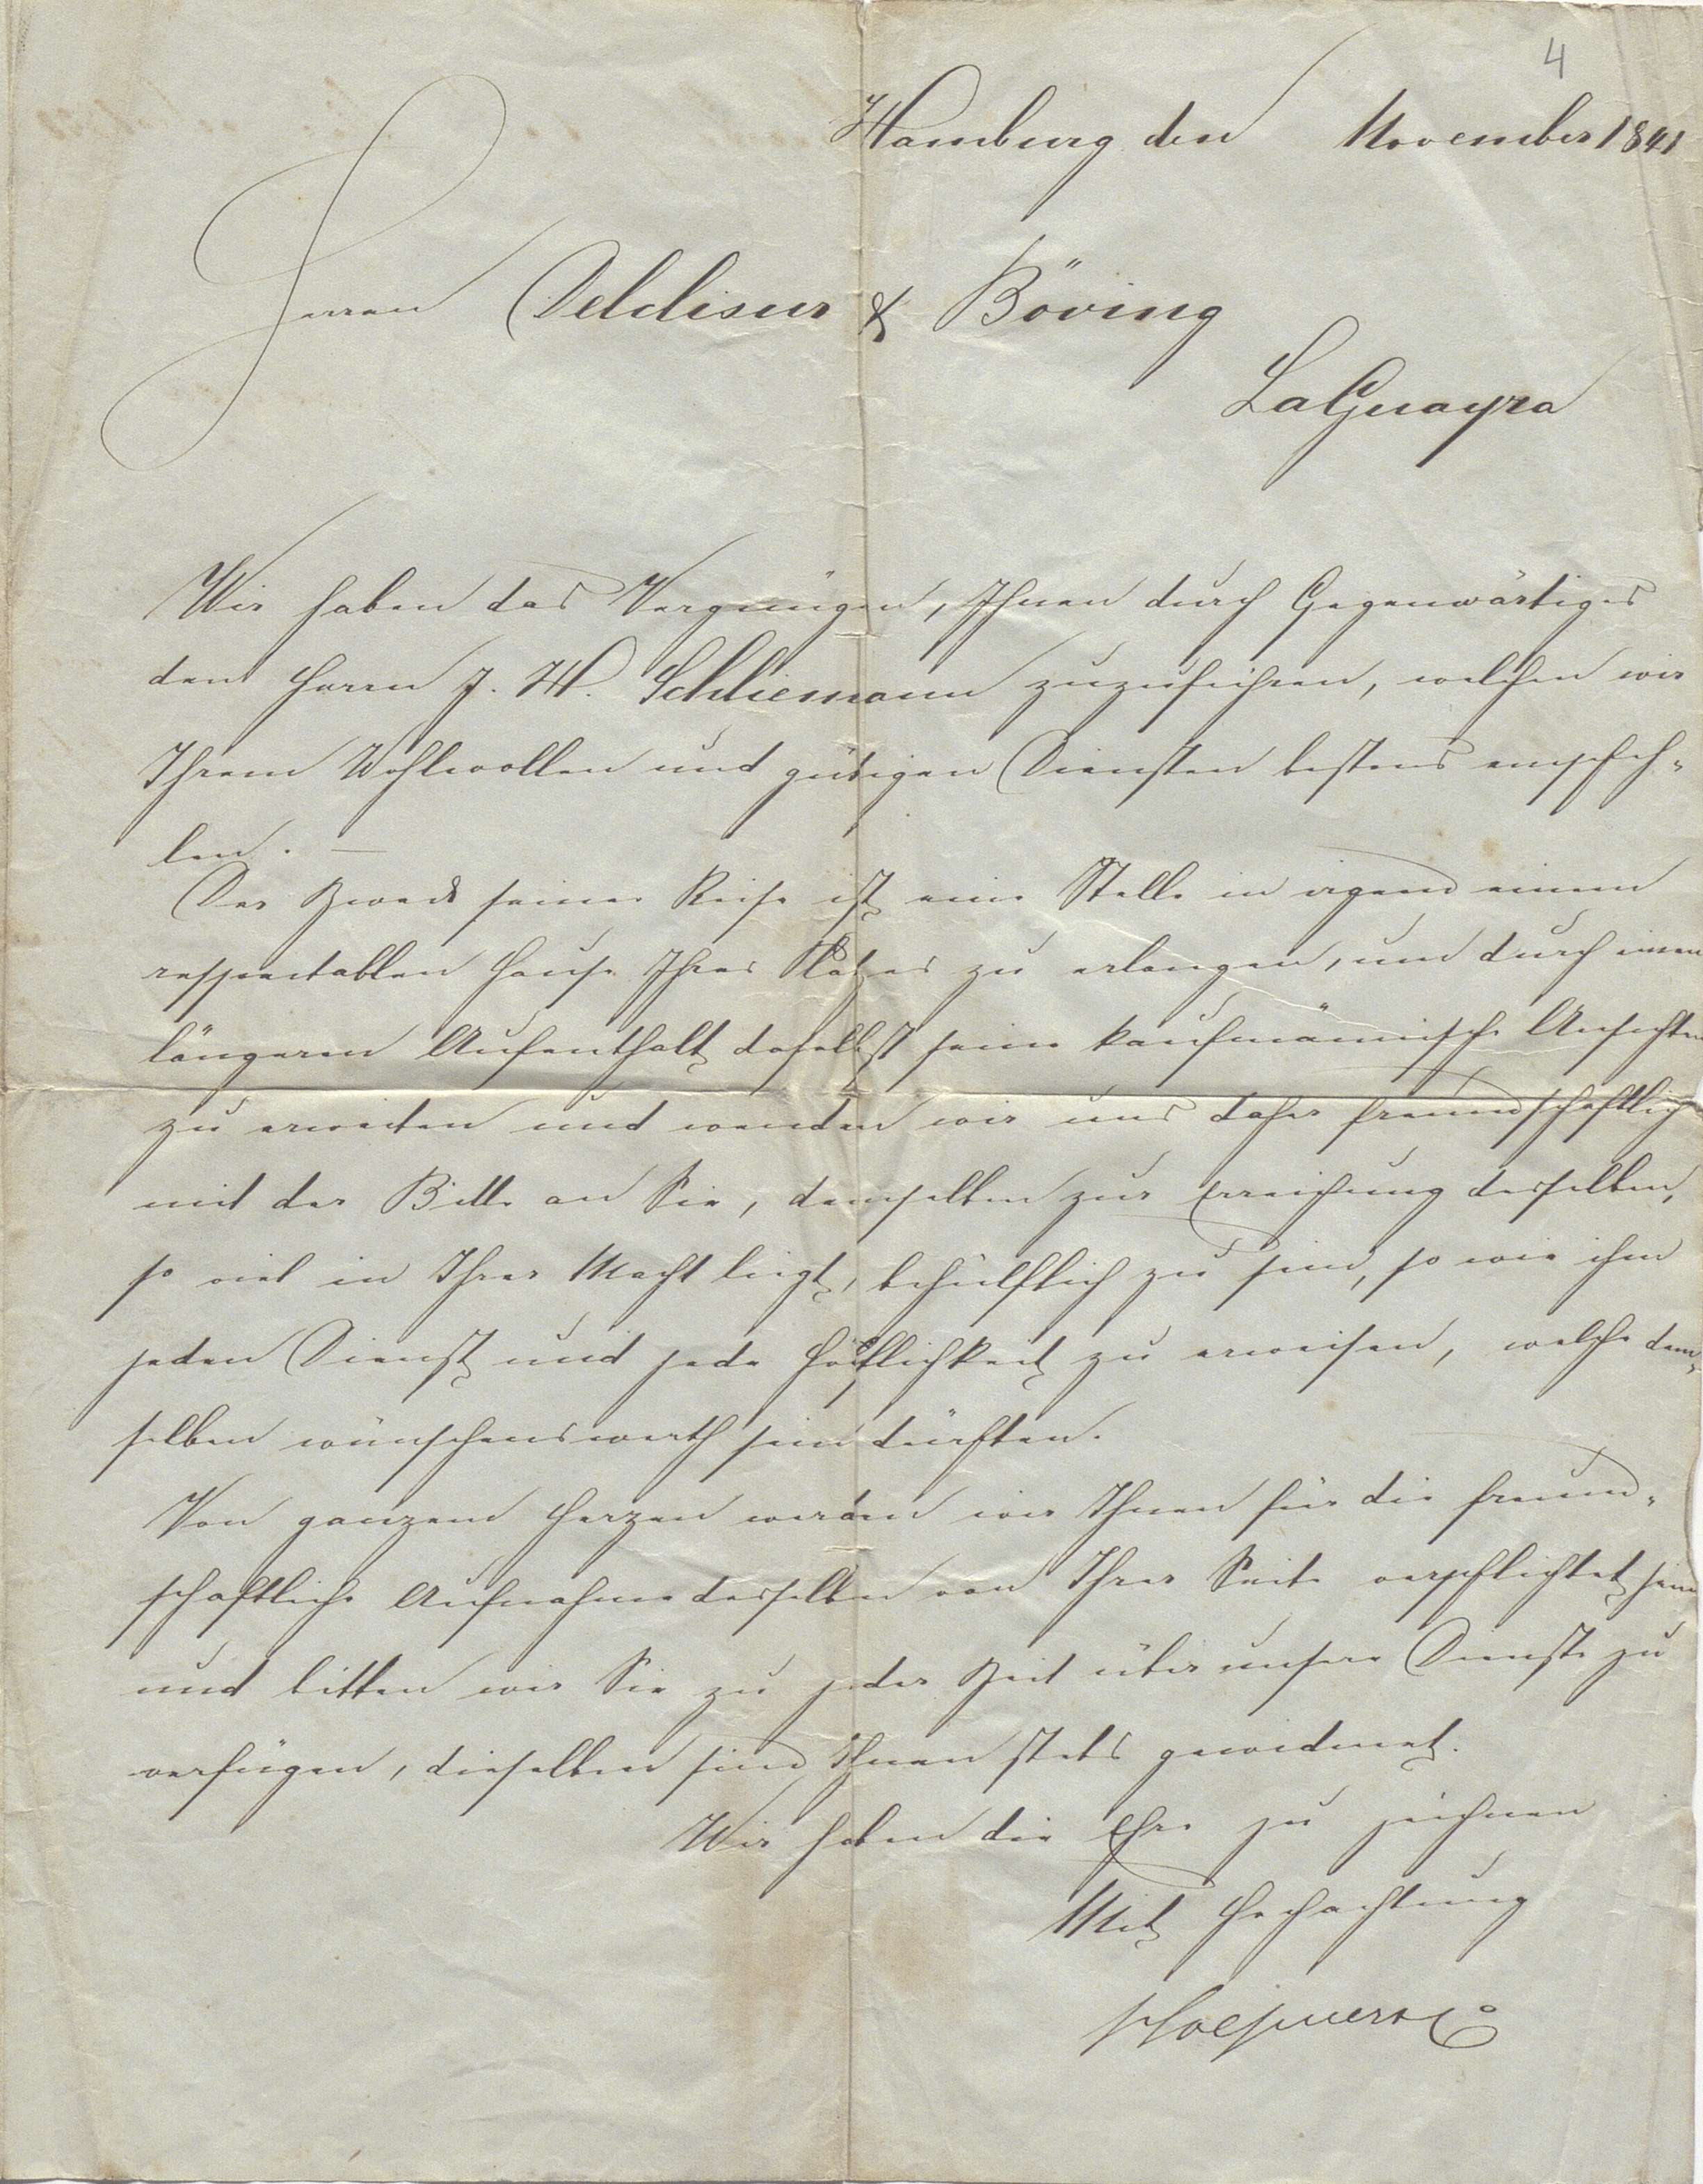 4
Hamburg den November 1841
Herren & Böving
LaGuayra
Wir haben das Vergnügen, Ihnen durch Gegenwärtiges
den Herrn J. H. Schliemann zuzuführen, welchen wir
Ihrem Wohlwollen und gütigen Diensten bestens empfeh-
len. —
Der Zweck seiner Reise ist eine Stelle in irgend einem
respectablen Hause Ihres Platzes zu erlangen, um durch einen
längeren Aufenthalt daselbst seine kaufmännische Ansichten
zu erweiten und wenden wir uns daher freundschaftlich
mit der Bitte an Sie, demselben zur Erreichung desselben,
so viel in Ihrer Macht liegt, behülflich zu sein, so wie ihm
jeden Dienst und jede Höflichkeit zu erweisen, welche dem-
selben wünschenswerth sein dürften.
Von ganzem Herzen werden wir Ihnen für die freund-
schaftliche Aufnahme desselben von Ihrer Seite verpflichtet sein
und bitten wir Sie zu jeder Zeit über unsere Dienste zu
verfügen, dieselben sind Ihnen stets gewidmet.
Wir haben die Ehre zu zeichnen
Mit Hochachtung